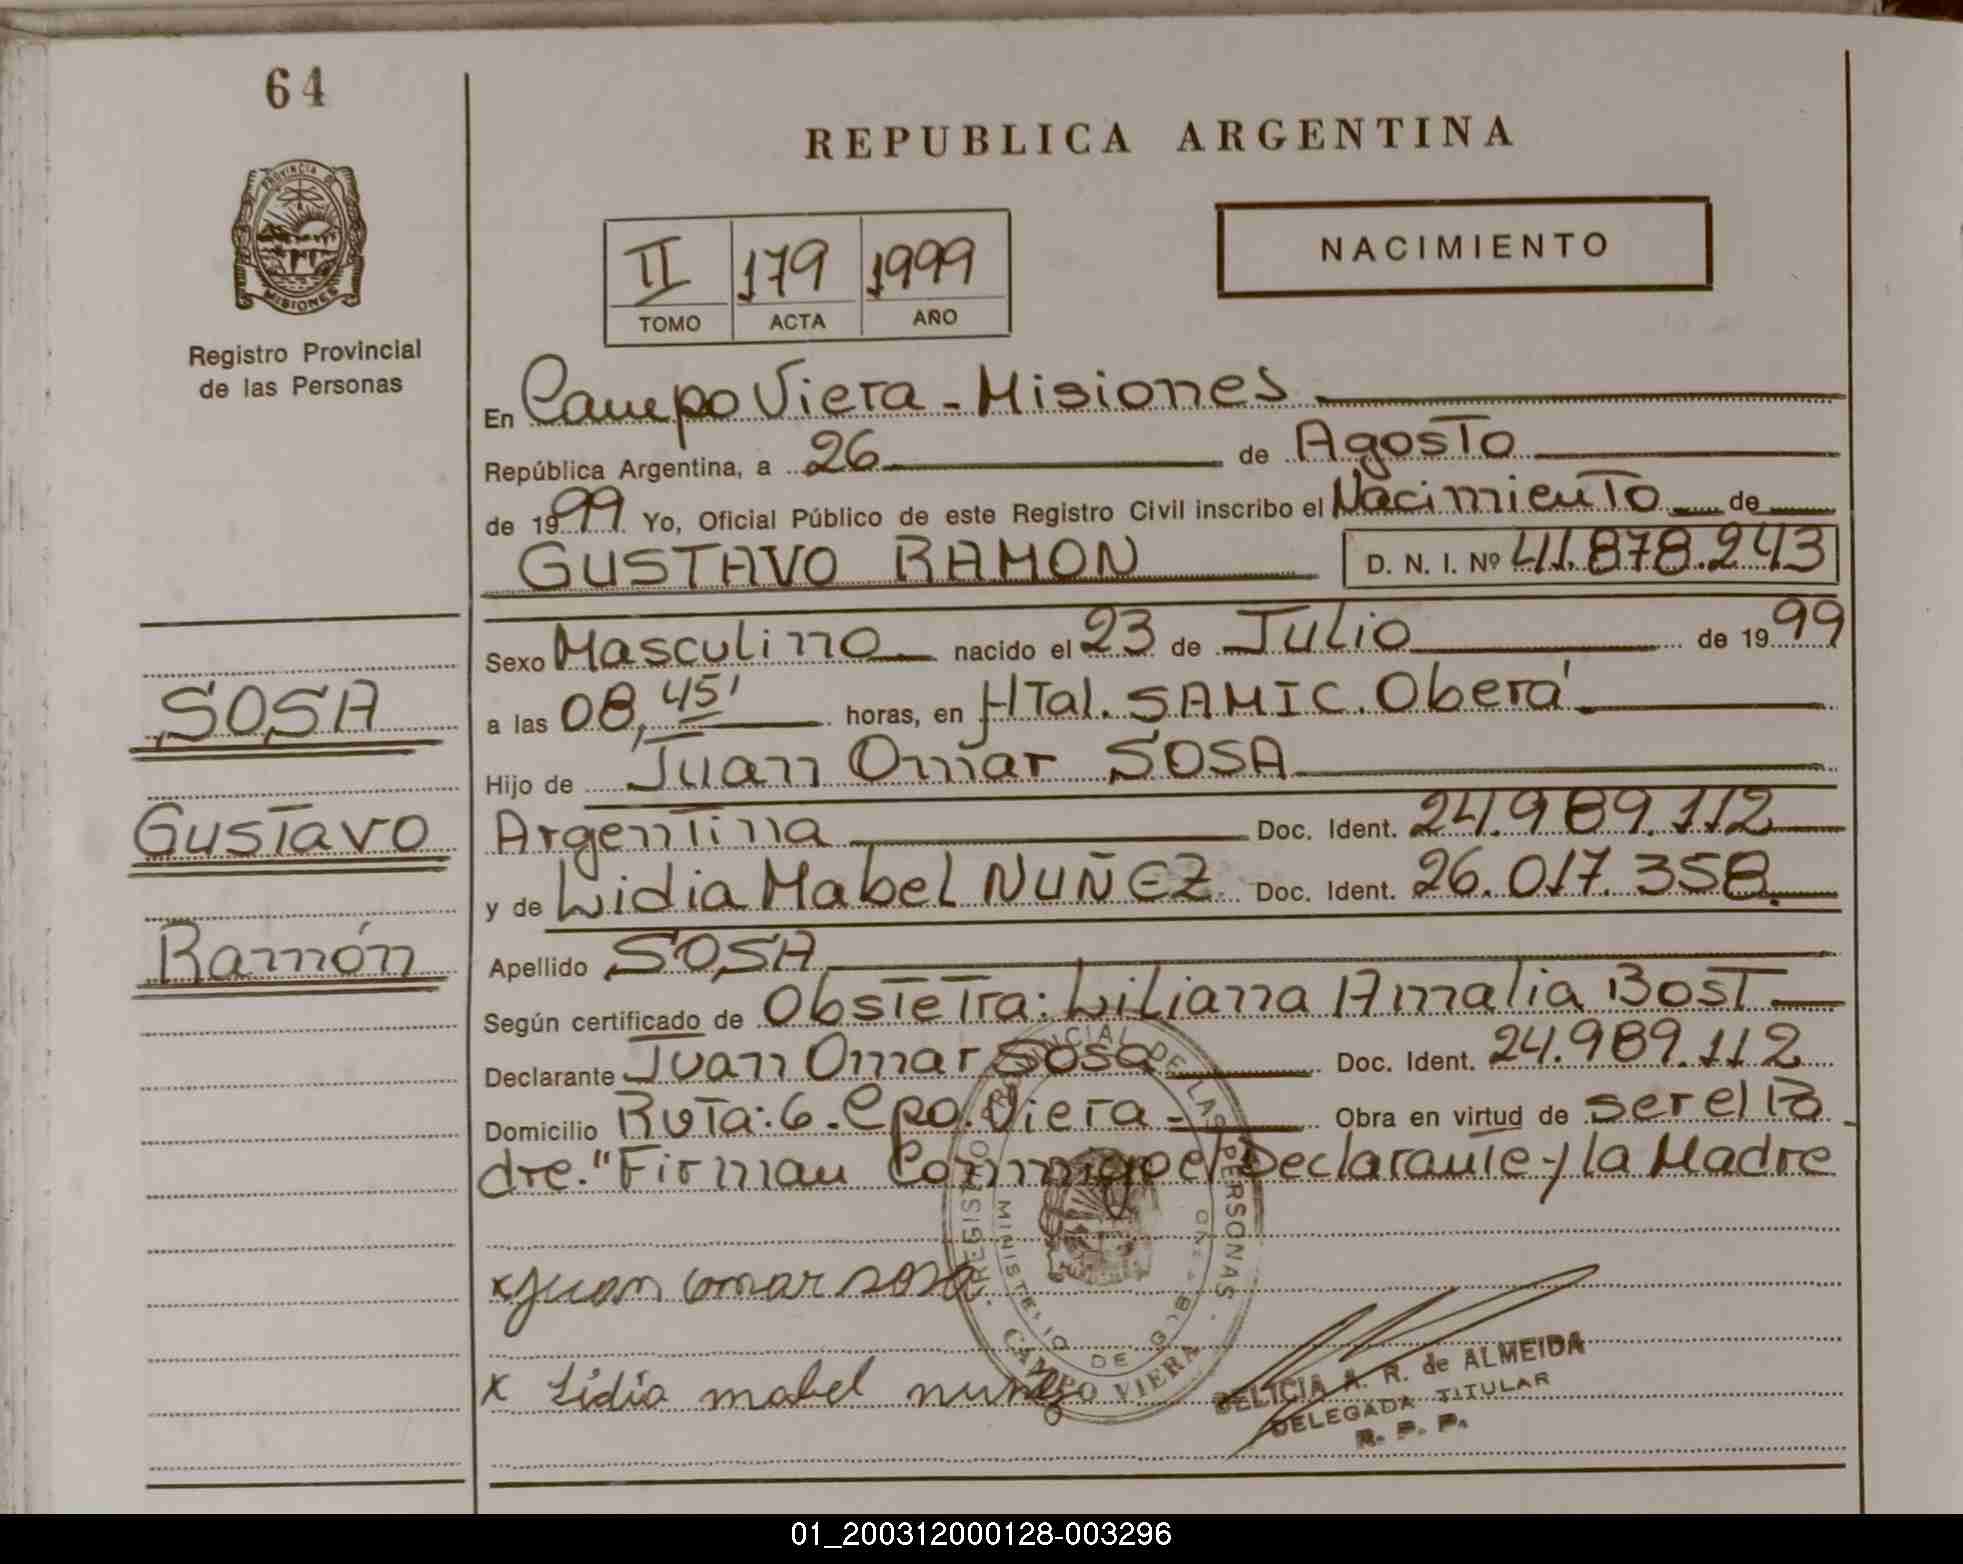 64
REPUBLICA ARGENTINA
PROVINCIA DE
MISIONES
Registro Provincial
de las Personas
II 179 1999
TOMO ACTA AÑO
NACIMIENTO
En Campo Viera - Misiones
República Argentina, a 26 de Agosto
de 1999 Yo, Oficial Público de este Registro Civil inscribo el Nacimiento de
GUSTAVO RAMON D. N. I. Nº 41.878.243
Sexo Masculino nacido el 23 de Julio de 1999
a las 08,45' horas, en HTal. SAMIC. Oberá
Hijo de Juan Omar SOSA
Argentina Doc. Ident. 24.989.112
y de Lidia Mabel NUÑEZ Doc. Ident. 26.017.358
Apellido SOSA
Según certificado de Obstetra: Liliana Amalia Bost
Declarante Juan Omar Sosa Doc. Ident. 24.989.112
Domicilio Ruta: 6. Cpo. Viera - Obra en virtud de ser el Pa
dre. "Firman Conmigo el Declarante y la Madre
SOSA
Gustavo
Ramón
x Juan omar sosa
x Lidia mabel nuñez
REGISTRO PROVINCIAL DE LAS PERSONAS
MINISTERIO DE
CAMPO VIERA
DELICIA A. R. de ALMEIDA
DELEGADA TITULAR
R. P. P.
01_200312000128-003296